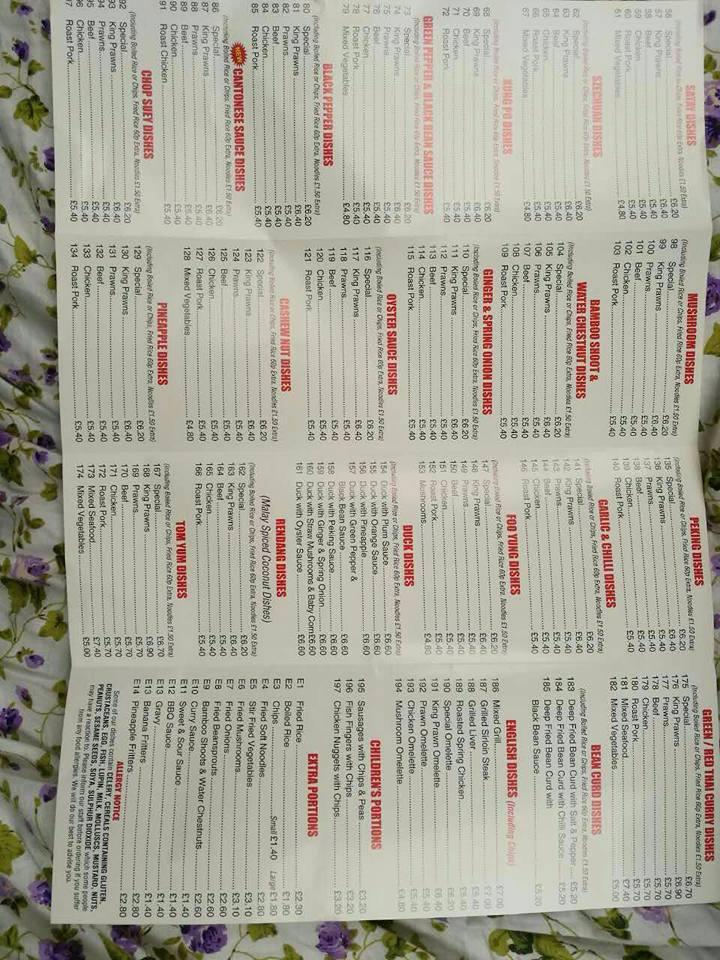 SATAY DISHES
(Including Boiled Rice or Chips, Fried Rice 60p Extra, Noodles £1.50 Extra)
56 Special £6.20
King Prawns £6.40
£5.40
£5.40
59 Chicken £5.40
60 Roast Pork £5.40
61 Mixed Vegetables £4.80
SZECHUAN DISHES
(Including Boiled Rice or Chips, Fried Rice 60p Extra, Noodles £1.50 Extra)
62 Special £6.20
63 King Prawns £6.40
64 Beef £5.40
65 Chicken £5.40
66 Roast Pork £5.40
67 Mixed Vegetables £4.80
KUNG PO DISHES
(Including Boiled Rice or Chips, Fried Rice 60p Extra, Noodles £1.50 Extra)
68 Special £6.20
69 King Prawns £6.40
70 Beef £5.40
71 Chicken £5.40
72 Roast Pork £5.40
GREEN PEPPER & BLACK BEAN SAUCE DISHES
(Including Boiled Rice or Chips, Fried Rice 60p Extra, Noodles £1.50 Extra)
73 Special £6.20
74 King Prawns £6.40
75 Prawns £5.40
76 Beef £5.40
77 Chicken £5.40
78 Roast Pork £5.40
79 Mixed Vegetables £4.80
BLACK PEPPER DISHES
(Including Boiled Rice or Chips, Fried Rice 60p Extra, Noodles £1.50 Extra)
80 Special £6.20
81 King Prawns £6.40
82 Prawns £5.40
83 Beef £5.40
84 Chicken £5.40
85 Roast Pork £5.40
CANTONESE SAUCE DISHES
(Including Boiled Rice or Chips, Fried Rice 60p Extra, Noodles £1.50 Extra)
86 Special £6.20
87 King Prawns £6.40
88 Prawns £5.40
89 Beef £5.40
90 Chicken £5.40
91 Roast Chicken £5.40
CHOP SUEY DISHES
(Including Boiled Rice or Chips, Fried Rice 60p Extra, Noodles £1.50 Extra)
92 Special £6.20
93 King Prawns £6.40
94 Prawns £5.40
95 Beef £5.40
96 Chicken £5.40
97 Roast Pork £5.40
MUSHROOM DISHES
(Including Boiled Rice or Chips, Fried Rice 60p Extra, Noodles £1.50 Extra)
98 Special £6.20
99 King Prawns £6.40
100 Prawns £5.40
101 Beef £5.40
102 Chicken £5.40
103 Roast Pork £5.40
BAMBOO SHOOT &
WATER CHESTNUT DISHES
(Including Boiled Rice or Chips, Fried Rice 60p Extra, Noodles £1.50 Extra)
104 Special £6.20
105 King Prawns £6.40
106 Prawns £5.40
107 Beef £5.40
108 Chicken £5.40
109 Roast Pork £5.40
GINGER & SPRING ONION DISHES
(Including Boiled Rice or Chips, Fried Rice 60p Extra, Noodles £1.50 Extra)
110 Special £6.20
111 King Prawns £6.40
112 Prawns £5.40
113 Beef £5.40
114 Chicken £5.40
115 Roast Pork £5.40
OYSTER SAUCE DISHES
(Including Boiled Rice or Chips, Fried Rice 60p Extra, Noodles £1.50 Extra)
116 Special £6.20
117 King Prawns £6.40
118 Prawns £5.40
119 Beef £5.40
120 Chicken £5.40
121 Roast Pork £5.40
CASHEW NUT DISHES
(Including Boiled Rice or Chips, Fried Rice 60p Extra, Noodles £1.50 Extra)
122 Special £6.20
123 King Prawns £6.40
124 Prawns £5.40
125 Beef £5.40
126 Chicken £5.40
127 Roast Pork £5.40
128 Mixed Vegetables £4.80
PINEAPPLE DISHES
(Including Boiled Rice or Chips, Fried Rice 60p Extra, Noodles £1.50 Extra)
129 Special £6.20
130 King Prawns £6.40
131 Prawns £5.40
132 Beef £5.40
133 Chicken £5.40
134 Roast Pork £5.40
PEKING DISHES
(Including Boiled Rice or Chips, Fried Rice 60p Extra, Noodles £1.50 Extra)
135 Special £6.20
136 King Prawns £6.40
137 Prawns £5.40
138 Beef £5.40
139 Chicken £5.40
140 Roast Pork £5.40
GARLIC & CHILLI DISHES
(Including Boiled Rice or Chips, Fried Rice 60p Extra, Noodles £1.50 Extra)
141 Special £6.20
142 King Prawns £6.40
143 Prawns £5.40
144 Beef £5.40
145 Chicken £5.40
146 Roast Pork £5.40
FOO YUNG DISHES
(Including Boiled Rice or Chips, Fried Rice 60p Extra, Noodles £1.50 Extra)
147 Special £6.20
148 King Prawns £6.40
149 Prawns £5.40
150 Beef £5.40
151 Chicken £5.40
152 Roast Pork £5.40
153 Mushrooms £4.80
DUCK DISHES
(Including Boiled Rice or Chips, Fried Rice 60p Extra, Noodles £1.50 Extra)
154 Duck with Plum Sauce £6.60
155 Duck with Orange Sauce £6.60
156 Duck with Pineapple £6.60
157 Duck with Green Pepper &
Black Bean Sauce £6.60
158 Duck with Peking Sauce £6.60
159 Duck with Ginger & Spring Onion £6.60
160 Duck with Straw Mushrooms & Baby Corn £6.60
161 Duck with Oyster Sauce £6.60
RENDANG DISHES
(Malay Spiced Coconut Dishes)
(Including Boiled Rice or Chips, Fried Rice 60p Extra, Noodles £1.50 Extra)
162 Special £6.20
163 King Prawns £6.40
164 Beef £5.40
165 Chicken £5.40
166 Roast Pork £5.40
TOM YUN DISHES
(Including Boiled Rice or Chips, Fried Rice 60p Extra, Noodles £1.50 Extra)
167 Special £6.70
168 King Prawns £6.90
169 Prawns £5.70
170 Beef £5.70
171 Chicken £5.70
172 Roast Pork £5.70
173 Mixed Seafood £7.40
174 Mixed Vegetables £5.00
GREEN / RED THAI CURRY DISHES
(Including Boiled Rice or Chips, Fried Rice 60p Extra, Noodles £1.50 Extra)
175 Special £6.70
176 King Prawns £6.90
177 Prawns £5.70
178 Beef £5.70
179 Chicken £5.70
180 Roast Pork £5.70
181 Mixed Seafood £7.40
182 Mixed Vegetables £5.00
BEAN CURD DISHES
(Including Boiled Rice or Chips, Fried Rice 60p Extra, Noodles £1.50 Extra)
183 Deep Fried Bean Curd with Salt & Pepper £5.20
184 Deep Fried Bean Curd with Chilli Sauce £5.20
185 Deep Fried Bean Curd with
Black Bean Sauce £5.20
ENGLISH DISHES (Including Chips)
186 Mixed Grill £7.00
187 Grilled Sirloin Steak £7.00
188 Grilled Liver £5.40
189 Roasted Spring Chicken £5.40
190 Special Omelette £6.20
191 King Prawn Omelette £6.40
192 Prawn Omelette £5.40
193 Chicken Omelette £5.40
194 Mushroom Omelette £4.80
CHILDREN'S PORTIONS
195 Sausages with Chips & Peas £3.20
196 Fish Fingers with Chips £3.20
197 Chicken Nuggets with Chips £3.20
EXTRA PORTIONS
E1 Fried Rice £2.30
E2 Boiled Rice £1.80
E3 Chips Small £1.40 Large £1.80
E4 Fried Soft Noodles £2.80
E5 Stir Fried Vegetables £3.10
E6 Fried Mushrooms £3.10
E7 Fried Onions £2.60
E8 Fried Beansprouts £2.60
E9 Bamboo Shoots & Water Chestnuts £2.60
E10 Curry Sauce £1.40
E11 Sweet & Sour Sauce £1.40
E12 BBQ Sauce £1.40
E13 Gravy £1.40
E13 Banana Fritters £2.80
E14 Pineapple Fritters £2.80
ALLERGY NOTICE
Some of our dishes contain CELERY, CEREALS CONTAINING GLUTEN,
CRUSTACEANS, EGG, FISH, LUPIN, MILK, MOLLUSCS, MUSTARD, NUTS,
PEANUTS, SESAME SEEDS, SOYA, SULPHUR DIOXIDE which some people
may have a reaction to. Please inform our staff before ordering if you suffer
from any food allergies. We will do our best to advise you.